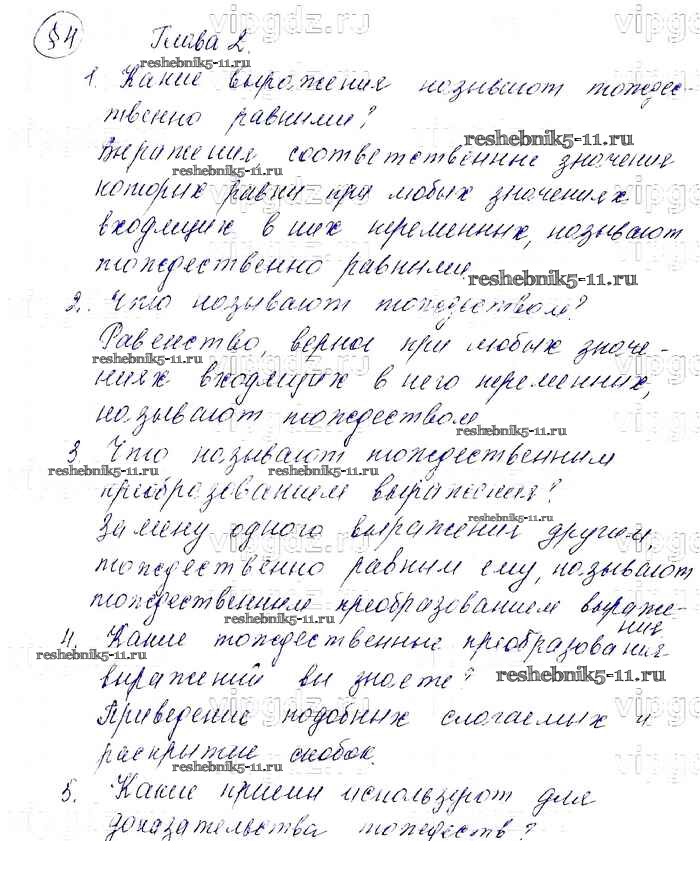 §4 Глава 2.
1. Какие выражения называют тождес-
твенно равными?
Выражения соответственные значения
которых равны при любых значениях
входящих в них переменных, называют
тождественно равными.
2. Что называют тождеством?
Равенство, верное при любых значе-
ниях входящих в него переменных,
называют тождеством
3. Что называют тождественным
преобразованием выражения?
Замену одного выражения другим,
тождественно равным ему, называют
тождественным преобразованием выраже-
ния
4. Какие тождественные преобразования
выражений вы знаете?
Приведение подобных слагаемых и
раскрытие скобок.
5. Какие приемы используют для
доказательства тождеств?
vipgdz.ru
reshebnik5-11.ru